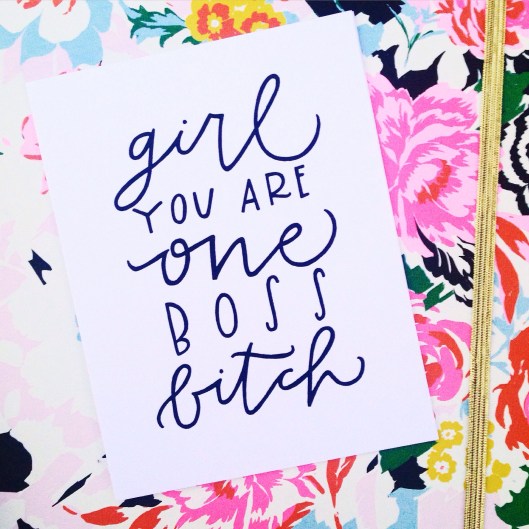 girl
YOU ARE
one
BOSS
bitch